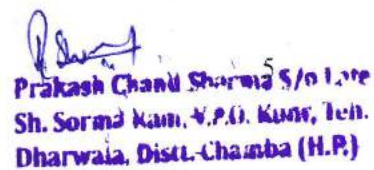 Prakash Chand Sharma S/o Late
Sh. Sorma Ram, V.P.O. Kunr, Teh.
Dharwala, Distt.-Chamba (H.P.)